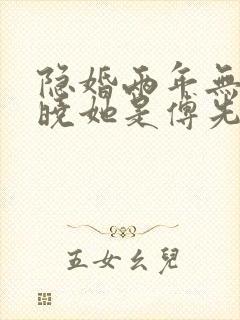 隐婚两年無
晓她是傅先
五女幺兒